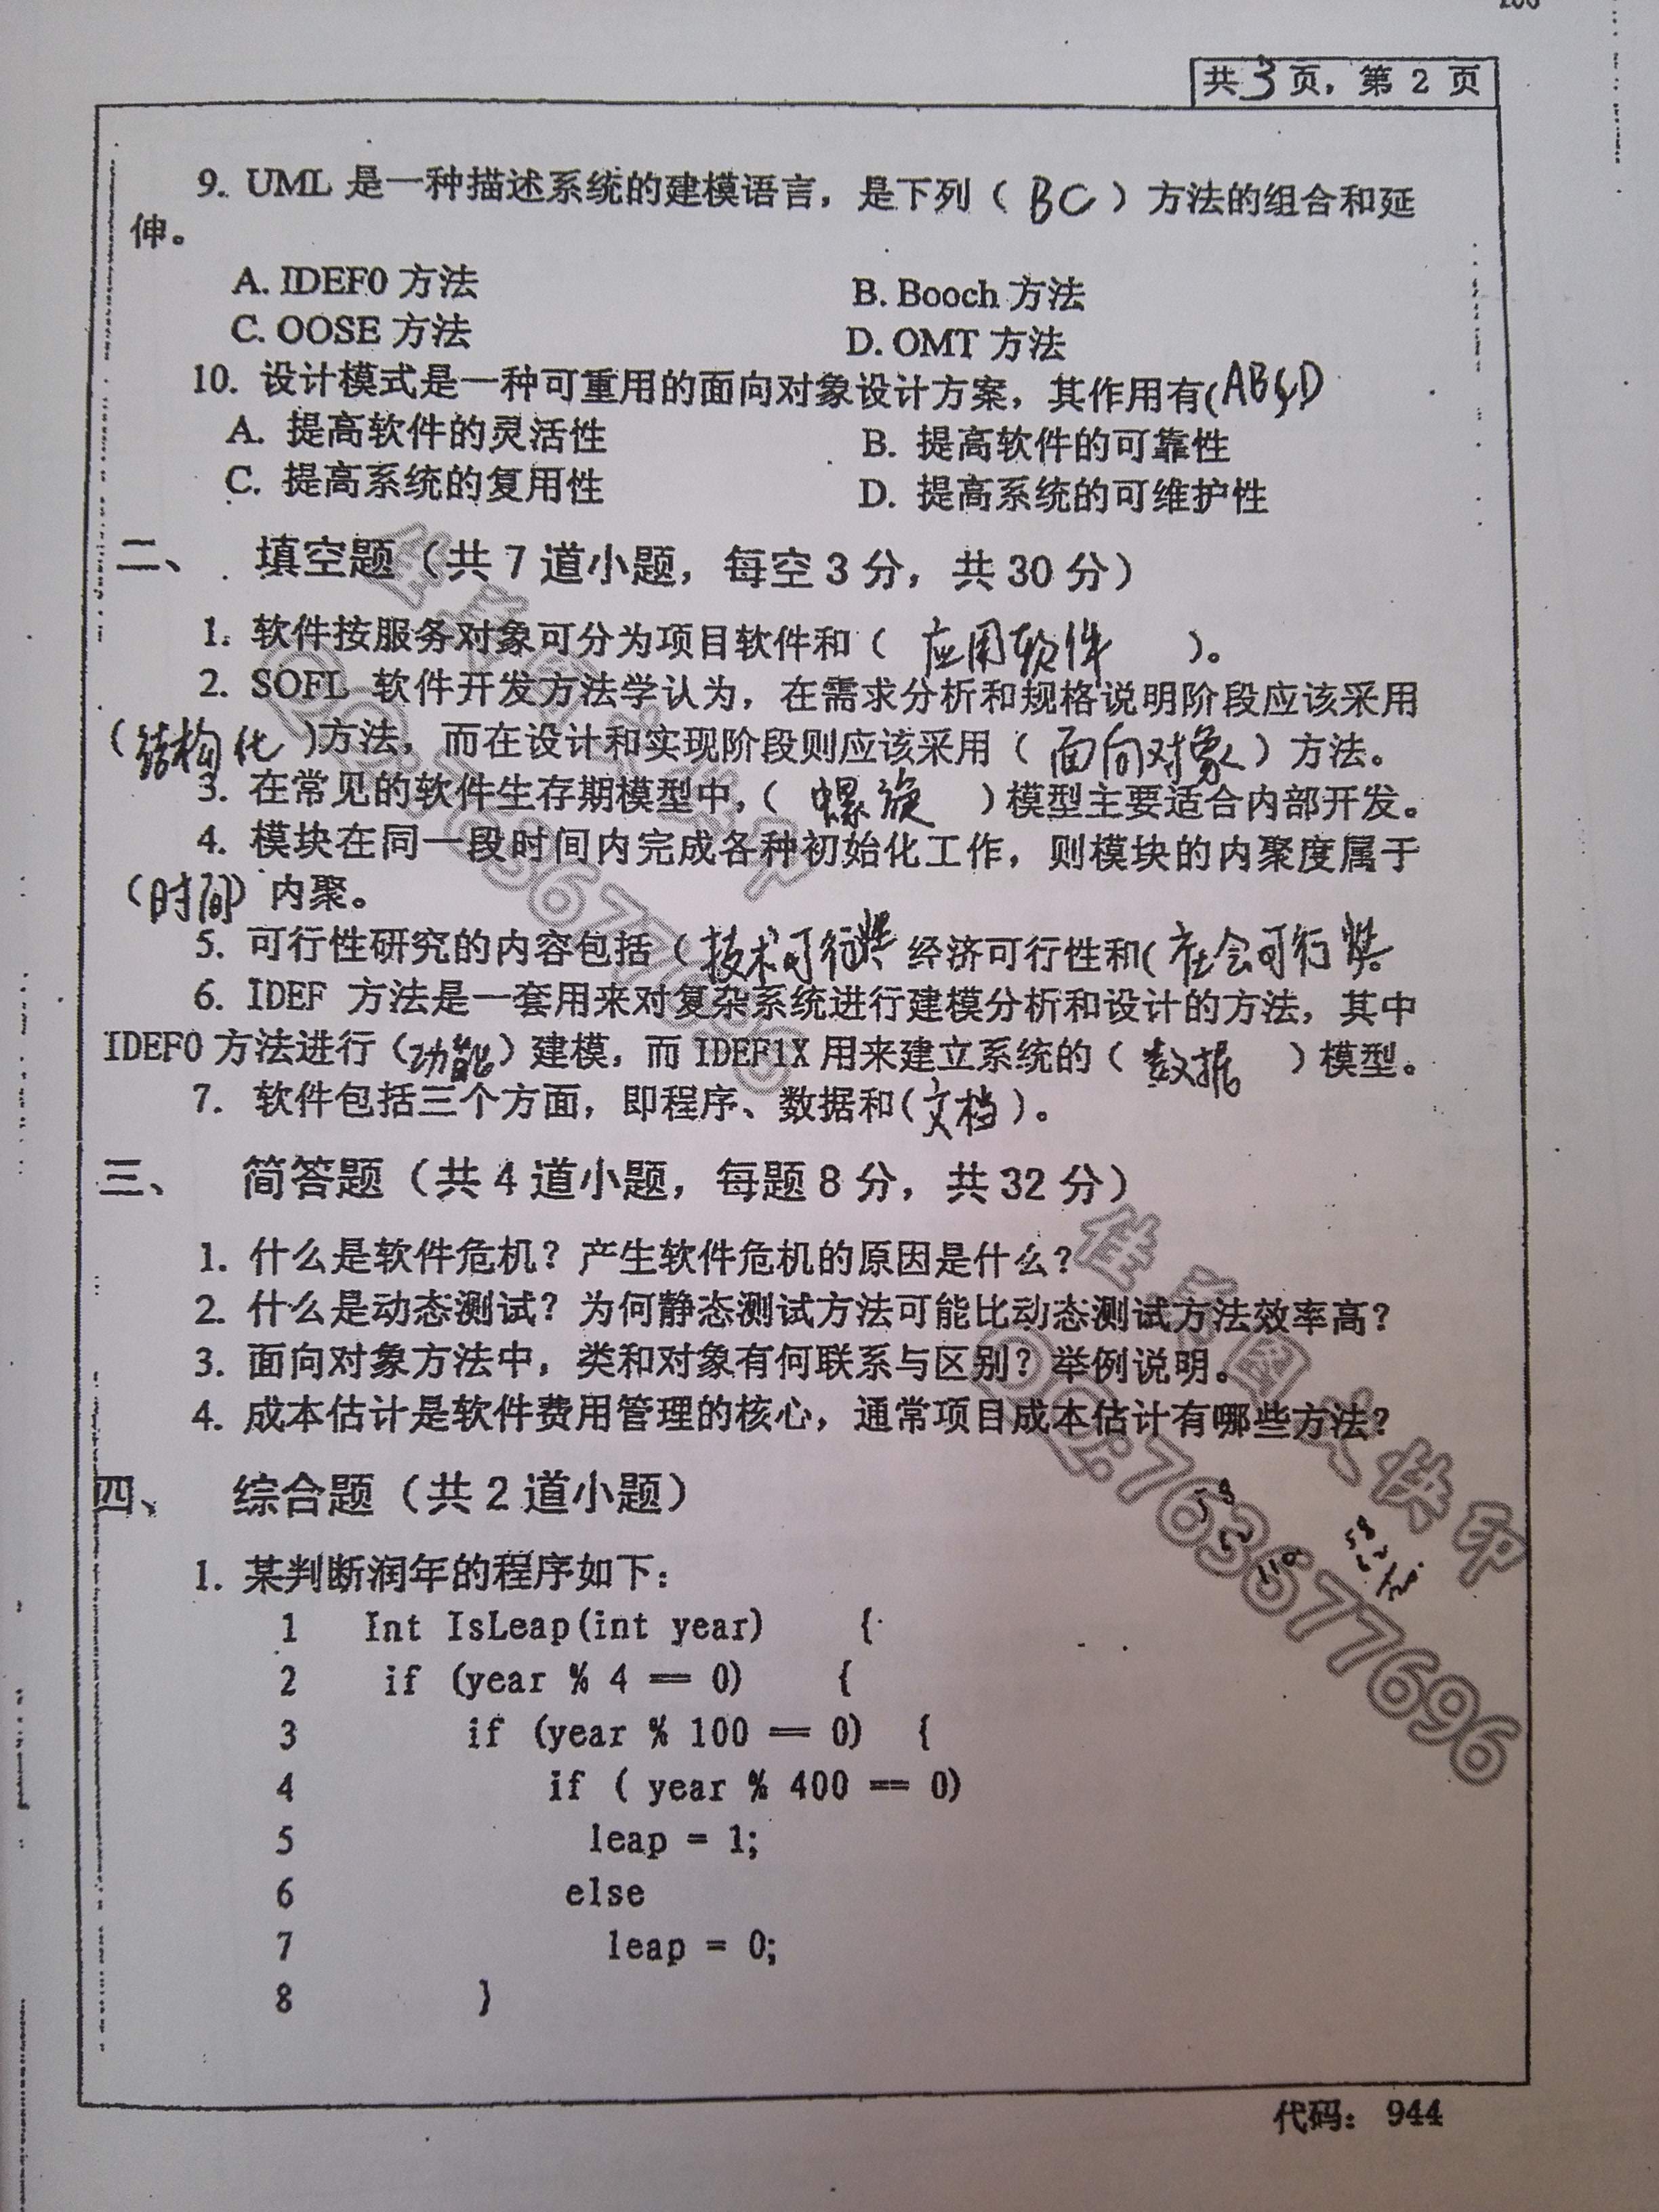 共3页，第 2 页
9. UML 是一种描述系统的建模语言，是下列（ BC ）方法的组合和延
伸。
A. IDEF0 方法 B. Booch 方法
C. OOSE 方法 D. OMT 方法
10. 设计模式是一种可重用的面向对象设计方案，其作用有(ABCD
A. 提高软件的灵活性 B. 提高软件的可靠性
C. 提高系统的复用性 D. 提高系统的可维护性
二、 填空题（共 7 道小题，每空 3 分，共 30 分）
1. 软件按服务对象可分为项目软件和（ 应用软件 ）。
2. SOFL 软件开发方法学认为，在需求分析和规格说明阶段应该采用
（结构化 ）方法，而在设计和实现阶段则应该采用（ 面向对象 ）方法。
3. 在常见的软件生存期模型中，（ 螺旋 ）模型主要适合内部开发。
4. 模块在同一段时间内完成各种初始化工作，则模块的内聚度属于
（时间）内聚。
5. 可行性研究的内容包括（ 技术可行性 经济可行性和( 社会可行性
6. IDEF 方法是一套用来对复杂系统进行建模分析和设计的方法，其中
IDEF0 方法进行（功能）建模，而 IDEF1X 用来建立系统的（ 数据 ）模型。
7. 软件包括三个方面，即程序、数据和(文档)。
三、 简答题（共 4 道小题，每题 8 分，共 32 分）
1. 什么是软件危机？产生软件危机的原因是什么？
2. 什么是动态测试？为何静态测试方法可能比动态测试方法效率高？
3. 面向对象方法中，类和对象有何联系与区别？举例说明。
4. 成本估计是软件费用管理的核心，通常项目成本估计有哪些方法？
四、 综合题（共 2 道小题）
1. 某判断润年的程序如下：
1 Int IsLeap(int year) {
2 if (year % 4 == 0) {
3 if (year % 100 == 0) {
4 if ( year % 400 == 0)
5 leap = 1;
6 else
7 leap = 0;
8 }
代码： 944
QQ:763677696
QQ:763677696